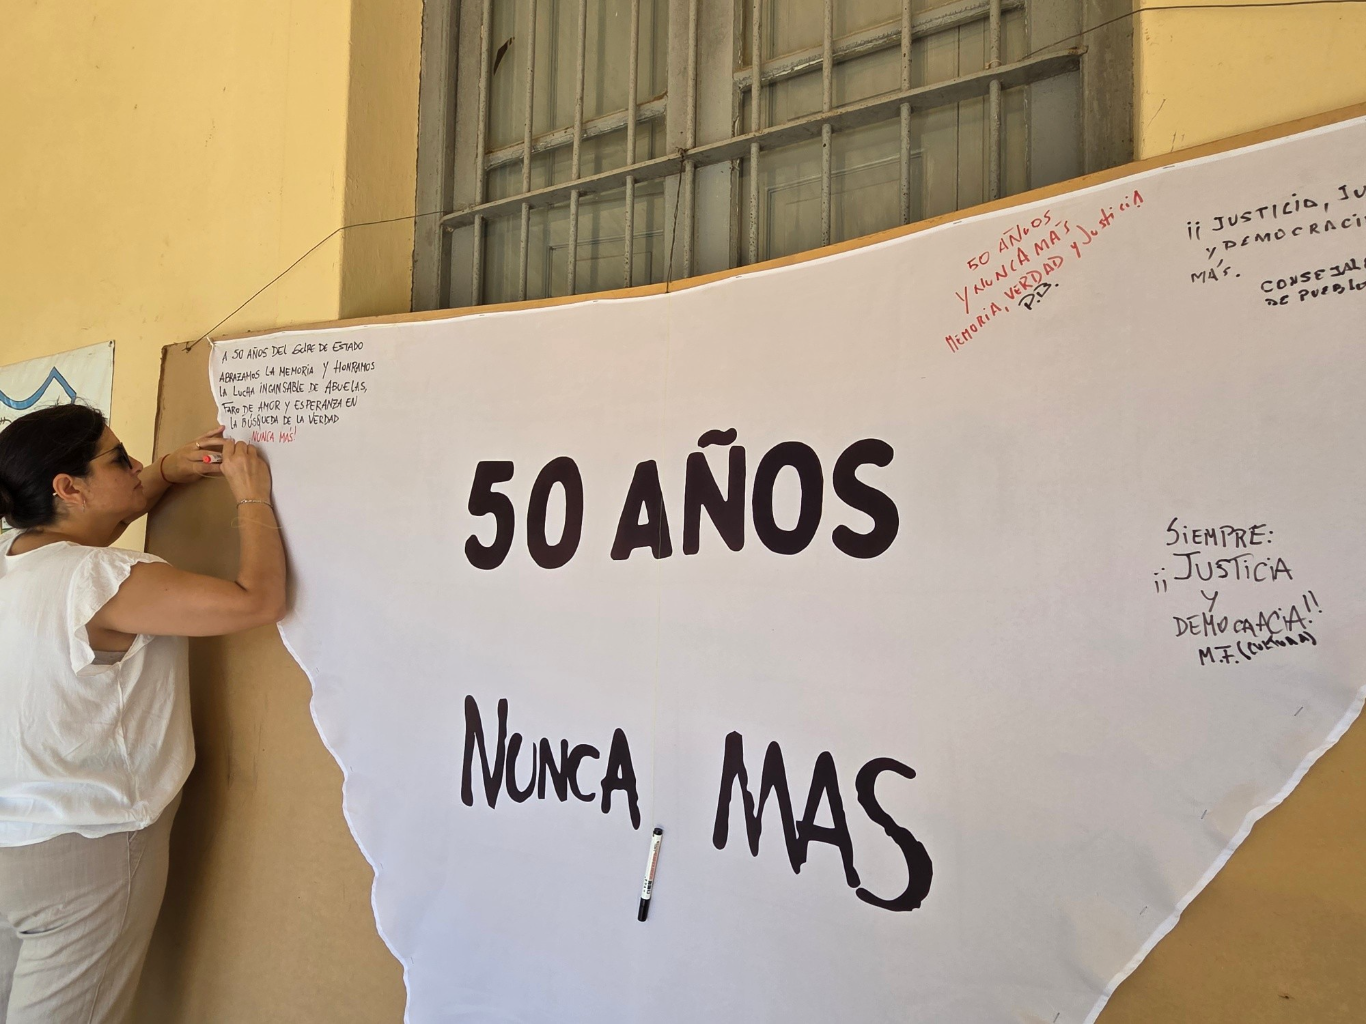 A 50 AÑOS DEL GOLPE DE ESTADO
ABRAZAMOS LA MEMORIA Y HONRAMOS
LA LUCHA INCANSABLE DE ABUELAS,
FARO DE AMOR Y ESPERANZA EN
LA BÚSQUEDA DE LA VERDAD
NUNCA MÁS!
50 AÑOS
Y NUNCA MÁS
MEMORIA, VERDAD Y JUSTICIA
P.B.
¡¡ JUSTICIA, JU
Y DEMOCRACI
MÁS.
CONSEJAL
DE PUEBLO
50 AÑOS
NUNCA MAS
SIEMPRE:
¡¡ JUSTICIA
Y
DEMOCRACIA!!
M.F. (CULTURA)